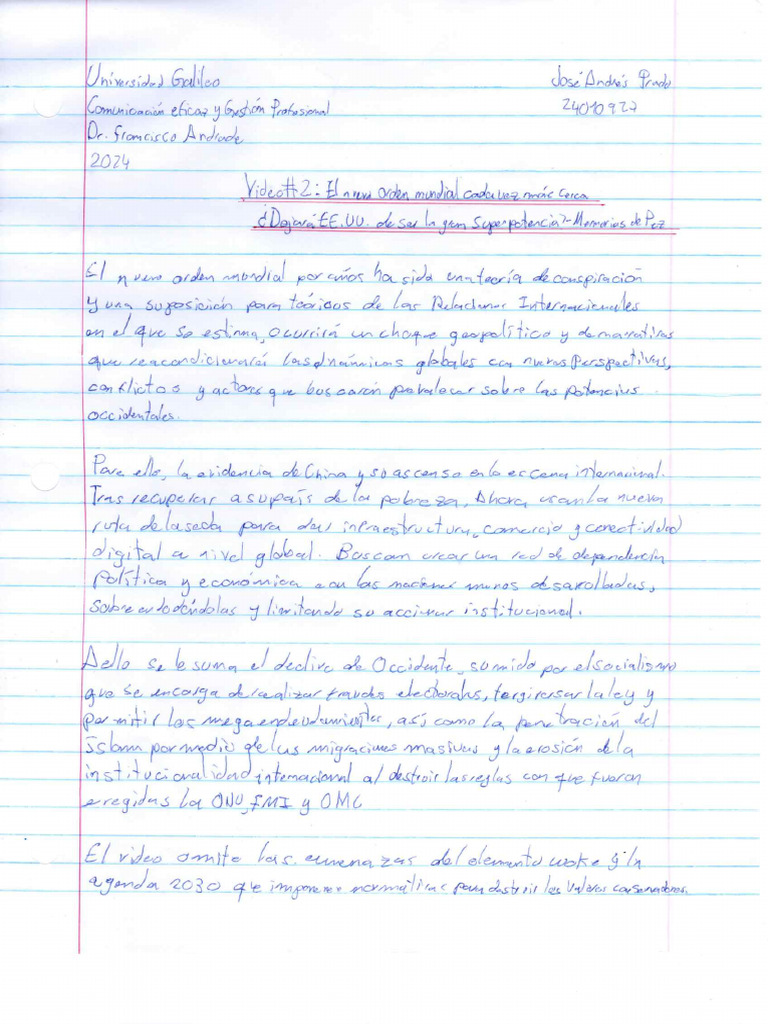 Universidad Galileo José Andrés Prado
Comunicación eficaz y Gestión Profesional 24010927
Dr. Francisco Andrade
2024
Video #2: El nuevo orden mundial cada vez más cerca
¿Dejará EE.UU. de ser la gran superpotencia?-Memorias de Pez
El nuevo orden mundial por años ha sido una teoría de conspiración
y una suposición para teóricos de las Relaciones Internacionales
en el que se estima, ocurrirá un choque geopolítico y de narrativas
que reacondicionará las dinámicas globales con nuevas perspectivas,
conflictos y actores que buscarán prevalecer sobre las potencias
occidentales.
Para ello, la evidencia de China y su ascenso en la escena internacional.
Tras recuperar a su país de la pobreza, Ahora usan la nueva
ruta de la seda para dar infraestructura, comercio y conectividad
digital a nivel global. Buscan crear un red de dependencia
política y económica con las naciones menos desarolladas,
sobreendeudándolas y limitando su accionar institucional.
A ello se le suma el declive de Occidente, sumido por el socialismo
que se encarga de realizar fraudes electorales, tergiversar la ley y
permitir los megaendeudamientos, así como la penetración del
islam por medio de las migraciones masivas y la erosión de la
institucionalidad internacional al destruir las reglas con que fueron
eregidas la ONU, FMI y OMC
El video omite las amenazas del elemento woke y la
agenda 2030 que imponen normativas para destruir los valores conservadores.